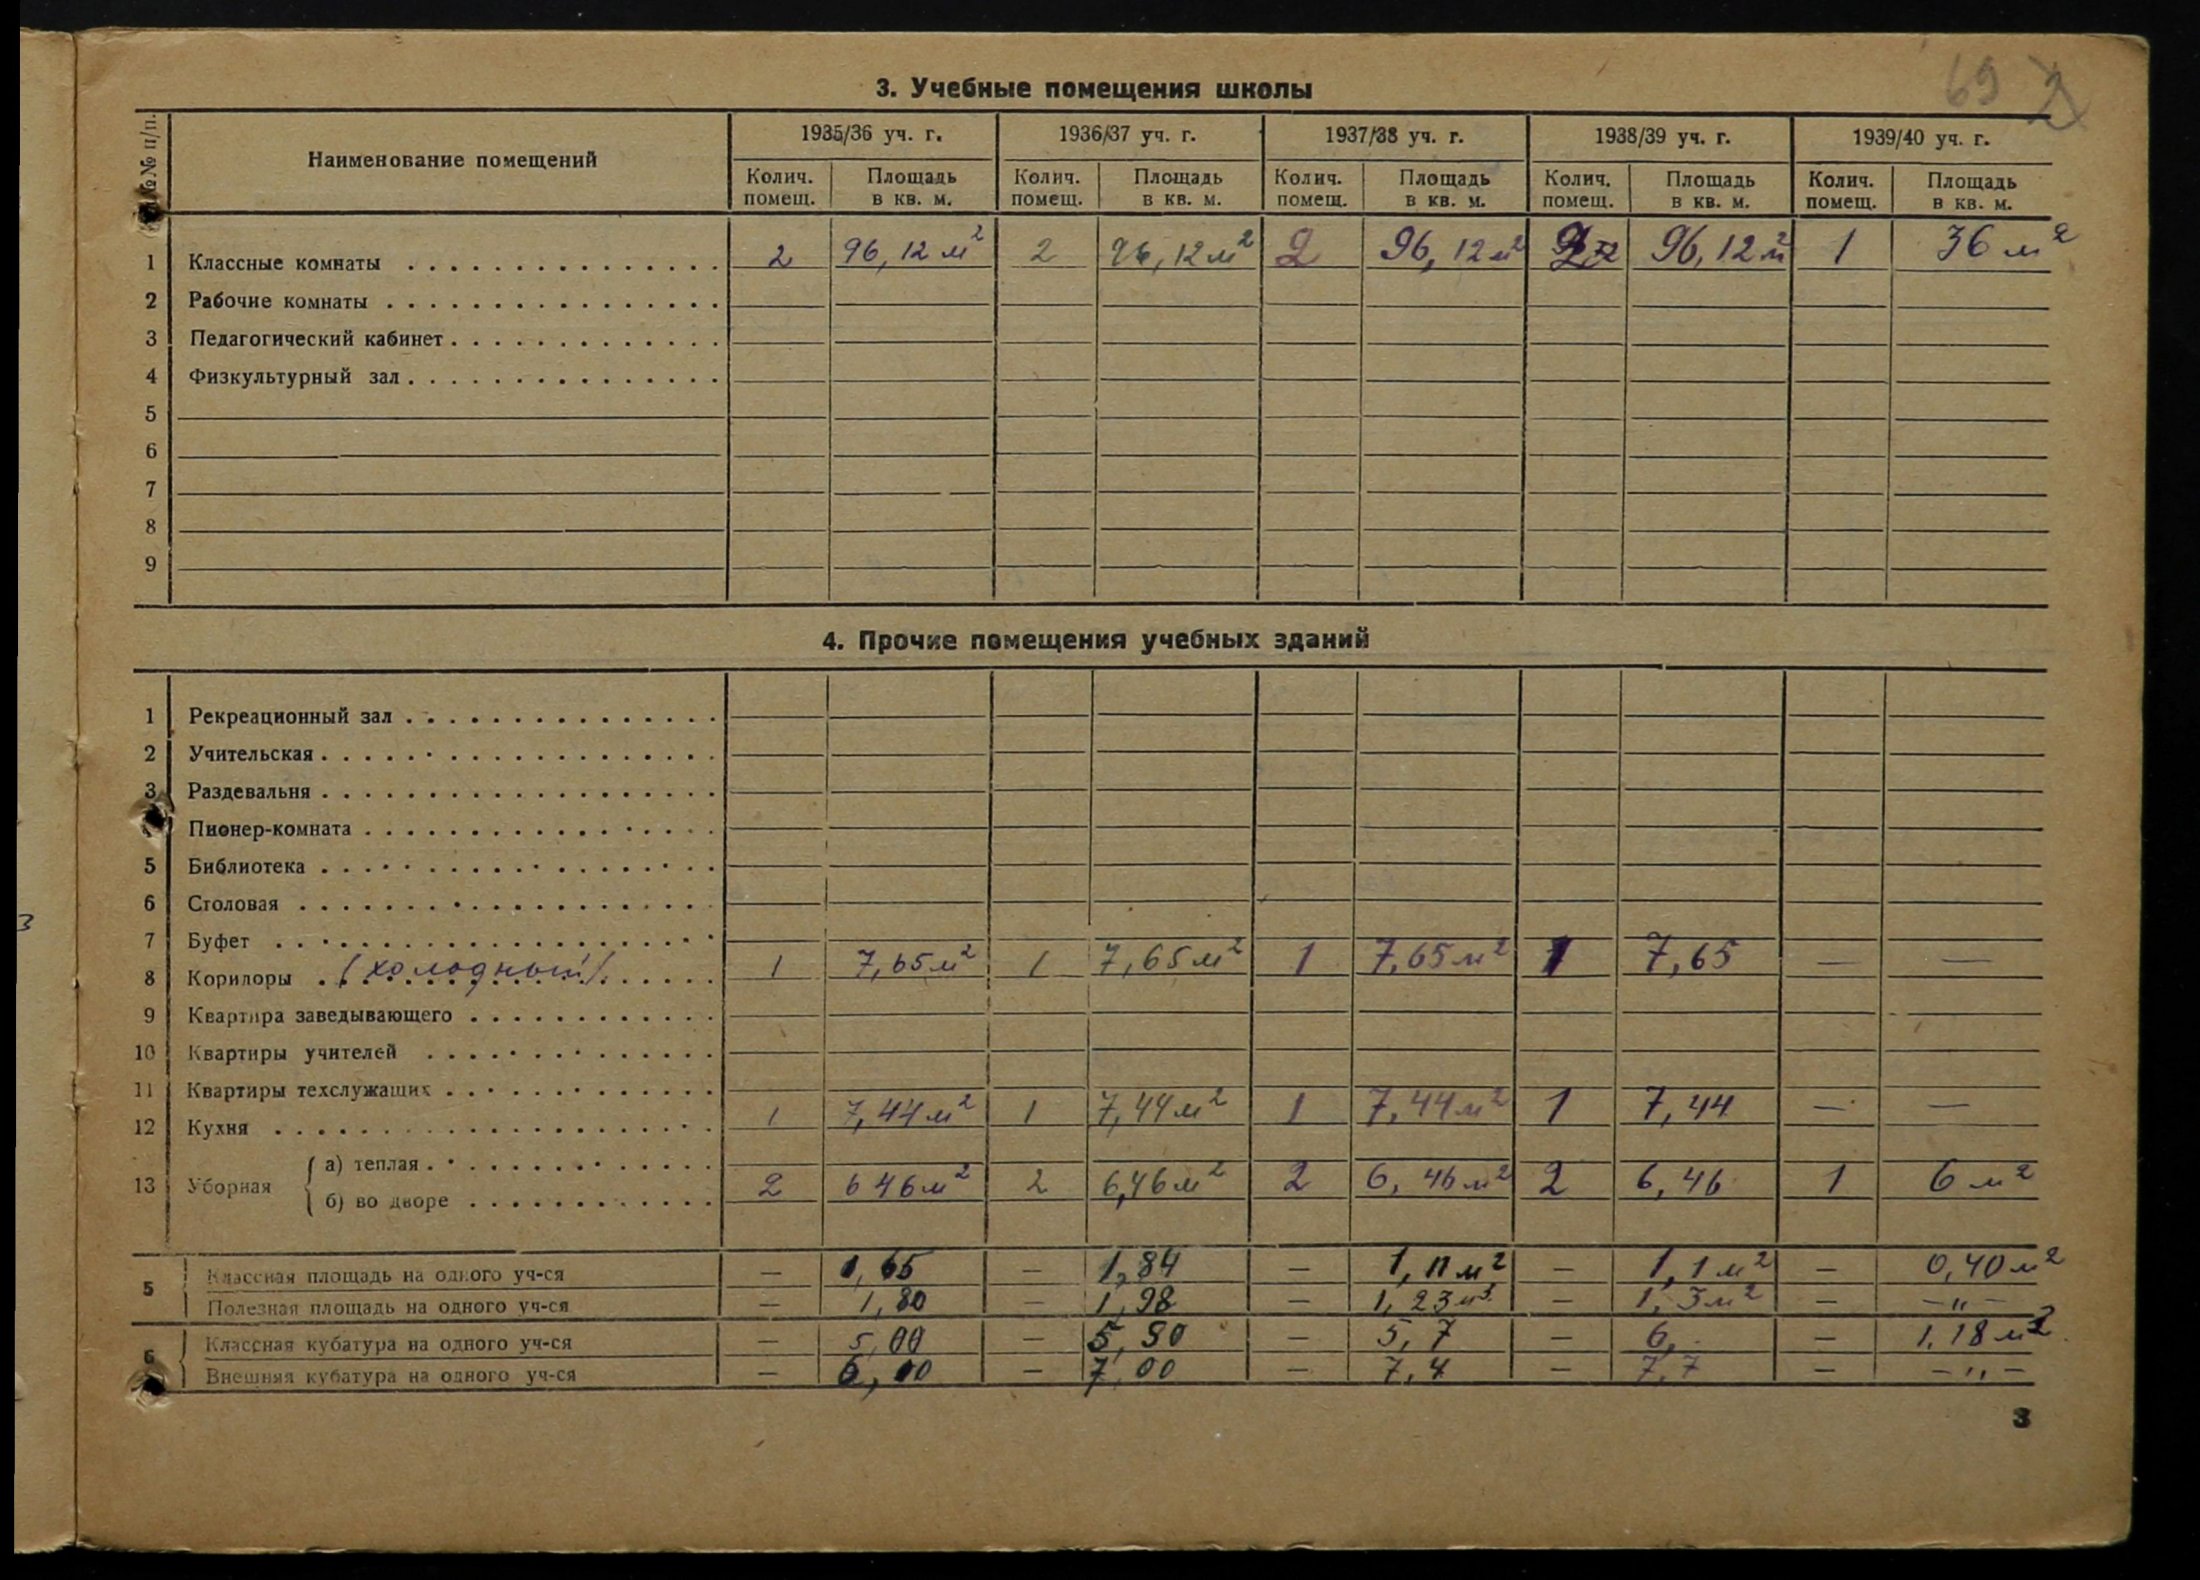 69 2
3. Учебные помещения школы
№№ п/п. Наименование помещений 1935/36 уч. г. 1936/37 уч. г. 1937/38 уч. г. 1938/39 уч. г. 1939/40 уч. г.
Колич. помещ. Площадь в кв. м. Колич. помещ. Площадь в кв. м. Колич. помещ. Площадь в кв. м. Колич. помещ. Площадь в кв. м. Колич. помещ. Площадь в кв. м.
1 Классные комнаты 2 96,12 м² 2 96,12 м² 2 96,12 м² 2 96,12 м² 1 36 м²
2 Рабочие комнаты
3 Педагогический кабинет
4 Физкультурный зал
5
6
7
8
9
4. Прочие помещения учебных зданий
1 Рекреационный зал
2 Учительская
3 Раздевальня
Пионер-комната
5 Библиотека
6 Столовая
7 Буфет
8 Коридоры (холодный) 1 7,65 м² 1 7,65 м² 1 7,65 м² 1 7,65 — —
9 Квартира заведывающего
10 Квартиры учителей
11 Квартиры техслужащих
12 Кухня 1 7,44 м² 1 7,44 м² 1 7,44 м² 1 7,44 — —
13 Уборная а) теплая
б) во дворе 2 6 46 м² 2 6,46 м² 2 6,46 м² 2 6,46 1 6 м²
5 Классная площадь на одного уч-ся — 1,65 — 1,84 — 1,11 м² — 1,1 м² — 0,40 м²
Полезная площадь на одного уч-ся — 1,80 — 1,98 — 1,23 м³ — 1,3 м² — -"-
6 Классная кубатура на одного уч-ся — 5,00 — 5,90 — 5,7 — 6, — 1,18 м²
Внешняя кубатура на одного уч-ся — 6,00 — 7,00 — 7,4 — 7,7 — -"-
3